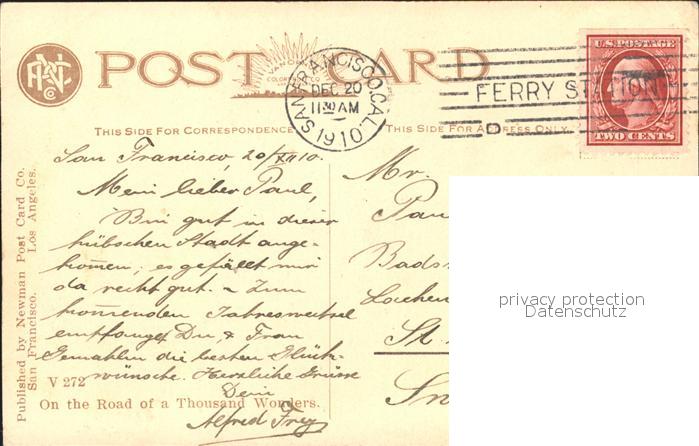 POST CARD
VAN ORNUM
COLORPRINT CO.
SAN FRANCISCO, CAL.
DEC 20
11 30 AM
1910
FERRY STATION
U.S. POSTAGE
TWO CENTS
THIS SIDE FOR CORRESPONDENCE
THIS SIDE FOR ADDRESS ONLY
San Francisco, 20/XII 10.
Mein lieber Paul,
Bin gut in dieser
hübschen Stadt ange-
kom̄en; es gefällt mir
da recht gut. – Zum
kom̄enden Jahreswechsel
empfanget Du, & Frau
Gemahlin die besten Glück-
wünsche. Herzliche Grüsse
Dein
Alfred Frey
Mr.
Pau
Bads
Lachen
St.
Published by Newman Post Card Co.
San Francisco. Los Angeles.
V 272
On the Road of a Thousand Wonders.
privacy protection
Datenschutz